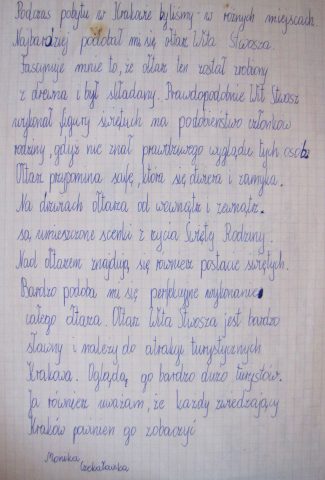 Podczas pobytu w Krakowie byliśmy w rożnych miejscach
Najbardziej podobał mi się ołtarz Wita Stwosza.
Fascynuje mnie to, że ołtarz ten został zrobiony
z drewna i był składany. Prawdopodobnie Wit Stwosz
wykonał figury świętych na podobieństwo członków
rodziny, gdyż nie znał prawdziwego wyglądu tych osób
Ołtarz przypomina szafę, która się otwiera i zamyka.
Na drzwiach ołtarza od wewnątrz i zewnątrz
są umieszczone scenki z życia Świętej Rodziny.
Nad ołtarzem znajdują się również postacie świętych.
Bardzo podoba mi się perfekcyjne wykonanie
całego ołtarza. Ołtarz Wita Stwosza jest bardzo
sławny i należy do atrakcji turystycznych
Krakowa. Ogląda go bardzo dużo turystów.
Ja również uważam, że każdy zwiedzający
Kraków powinien go zobaczyć
Monika